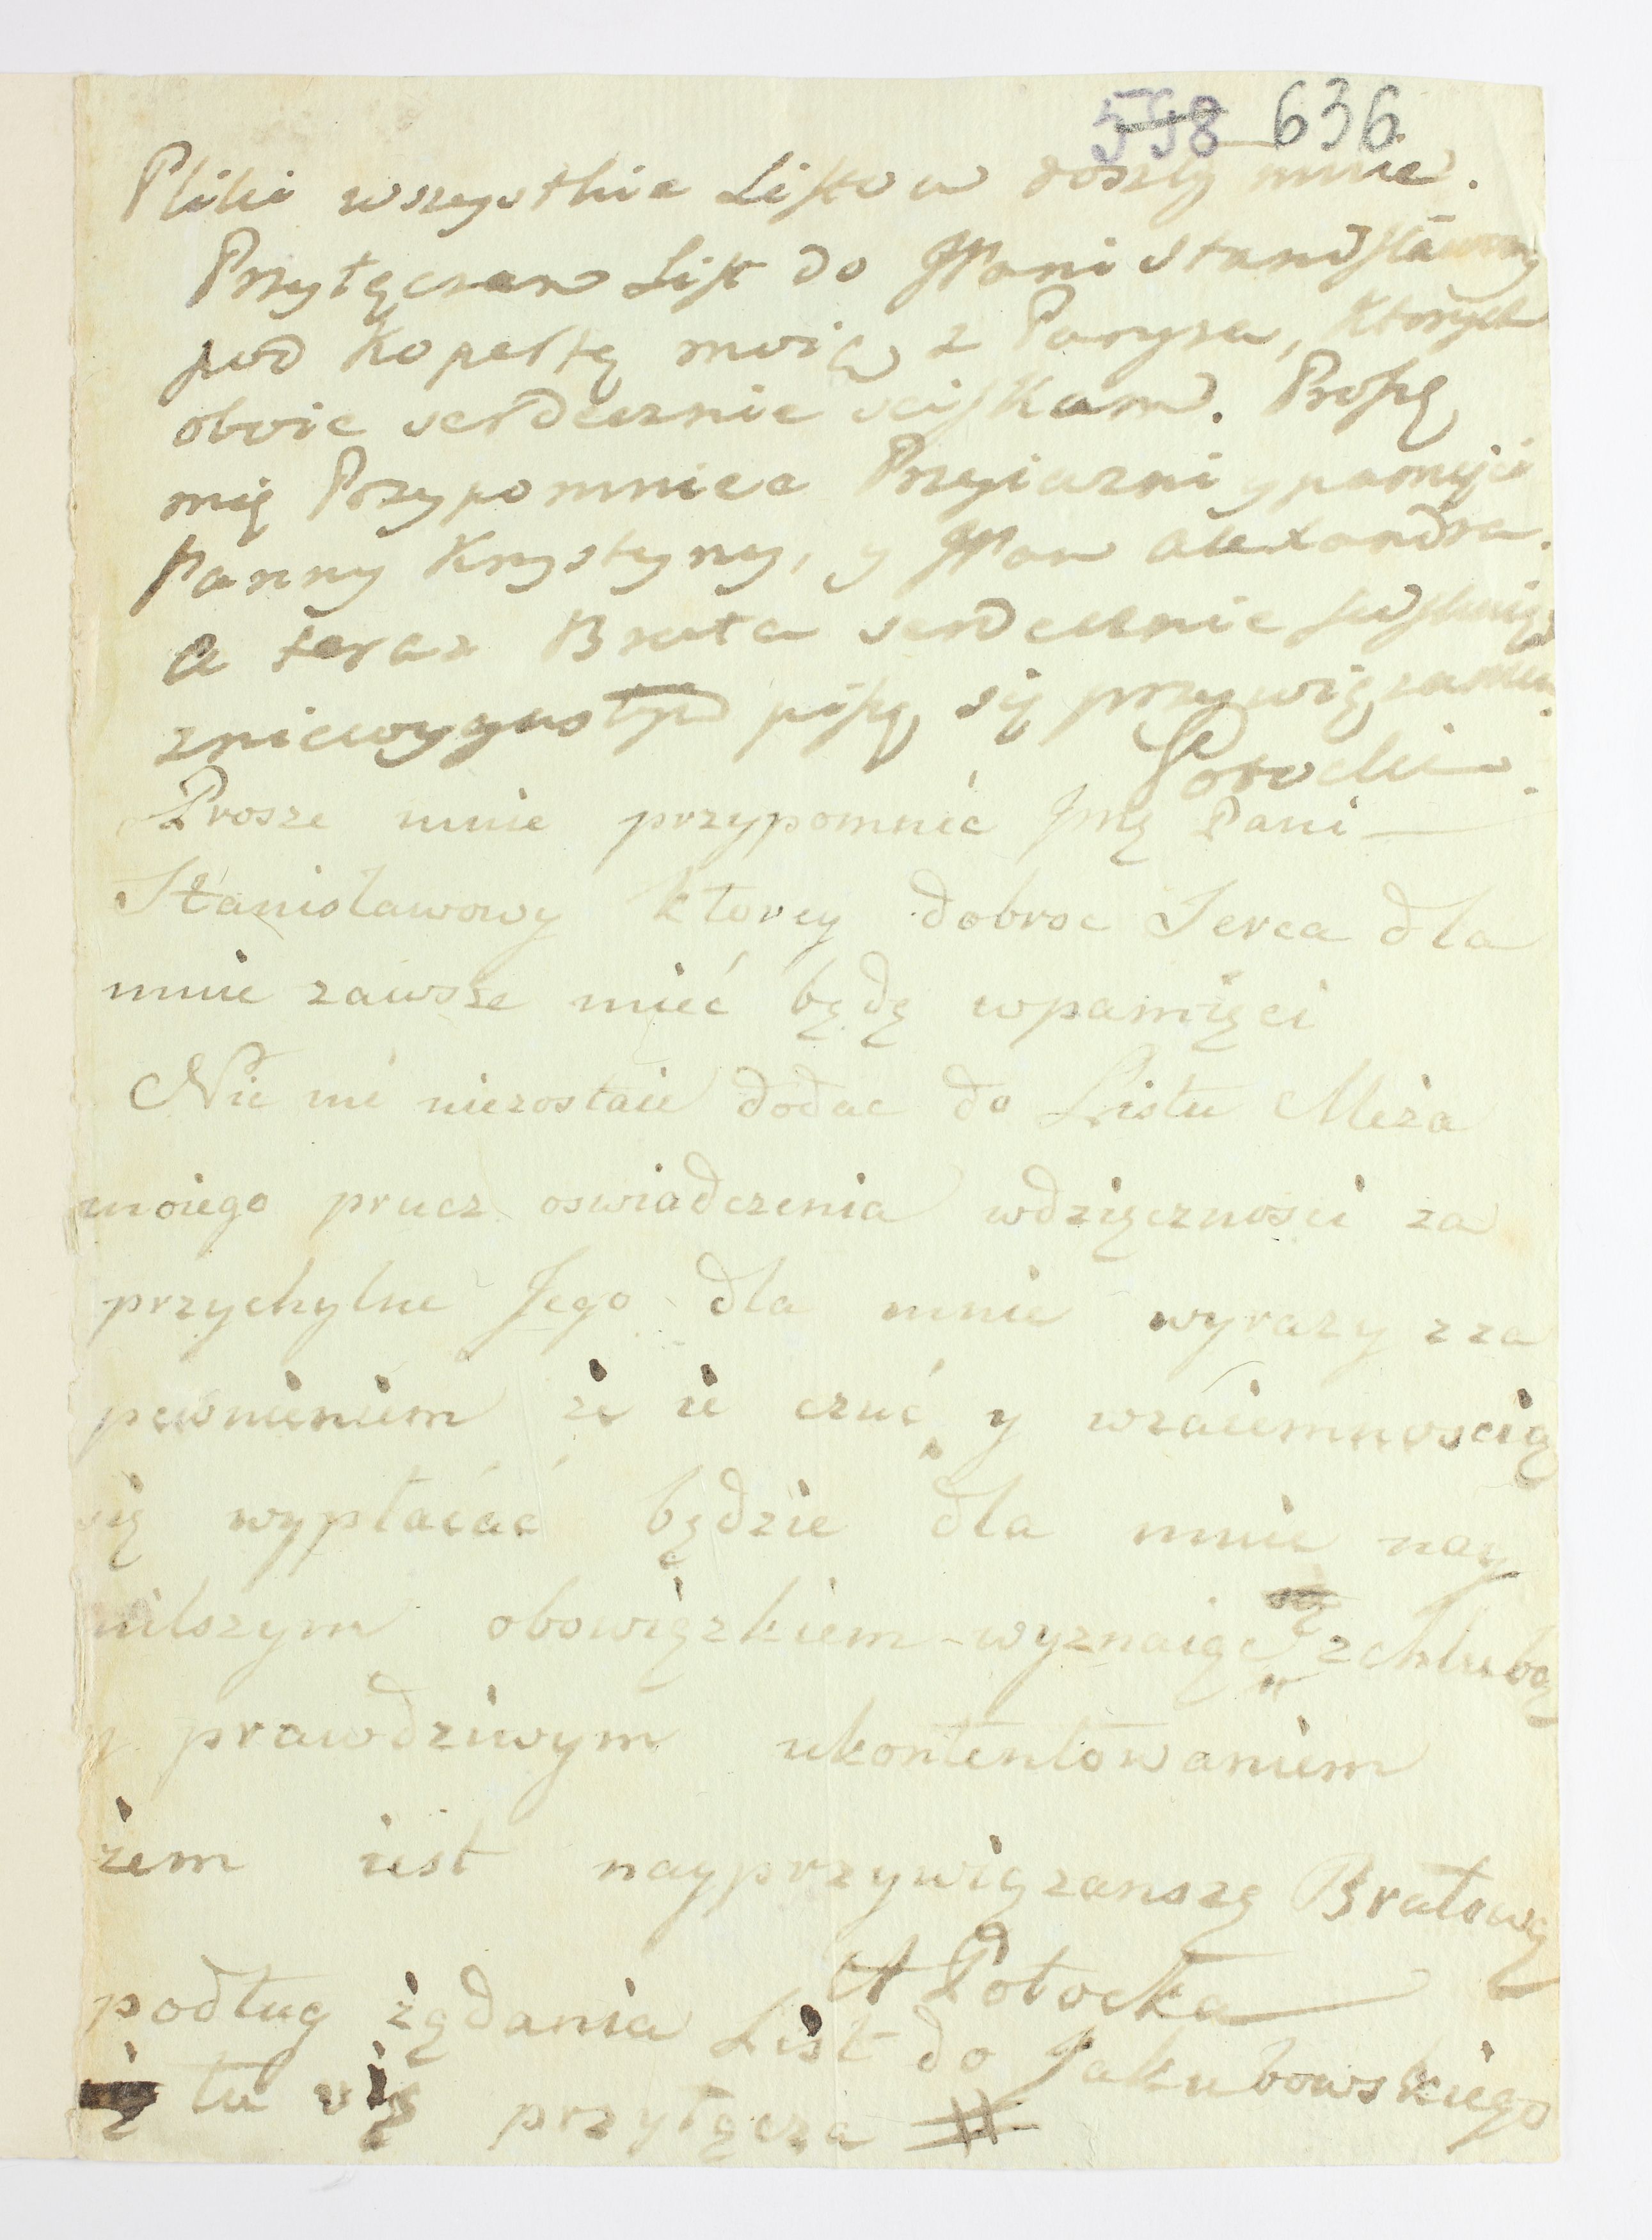 598 636
Pliki wszystkie Listow doszły mnie.
Przyłęczam List do JPani Stanisławowy
pod Kopertę moię z Paryza, których
oboie serdecznie sciskam. Proszę
mię Przypomniec Przyiazni y pamięci
Panny Krystyny, y JPan Alexandra.
a teraz Brata serdecznie
piszę się przywięzanem
Potocki
Prosze mnie przypomnić Jmę Pani
Stanisławowy ktorey dobroc Serca dla
mnie zawsze mieć będę wpamięci
Nic mi niezostaie dodac do Listu Męża
moiego prucz oswiadczenia wdzięcznosci za
przychylne Jego dla mnie wyrazy zza
pewnieniem że ie czuć y wzaiemnoscię
się wypłacać będzie dla mnie nay
milszym obowięzkiem wyznaięc zchlubę
y prawdziwym ukontentowaniem
żem iest nayprzywięzanszę Bratowę
A Potocka
podług żędania List do Jakubowskiego
tu się przyłęcza #